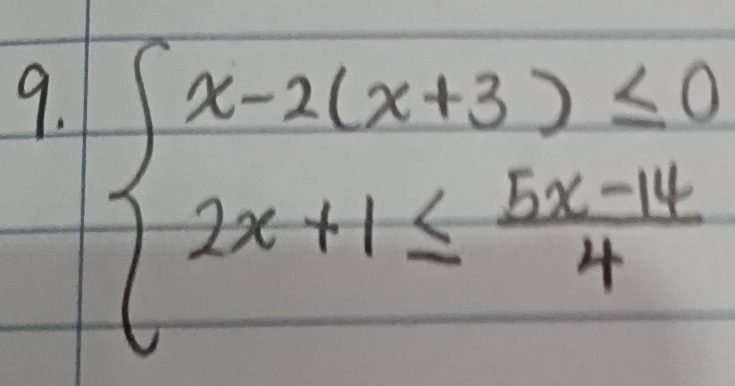 9. { x-2(x+3) ≤ 0
2x+1 ≤ \frac{5x-14}{4}